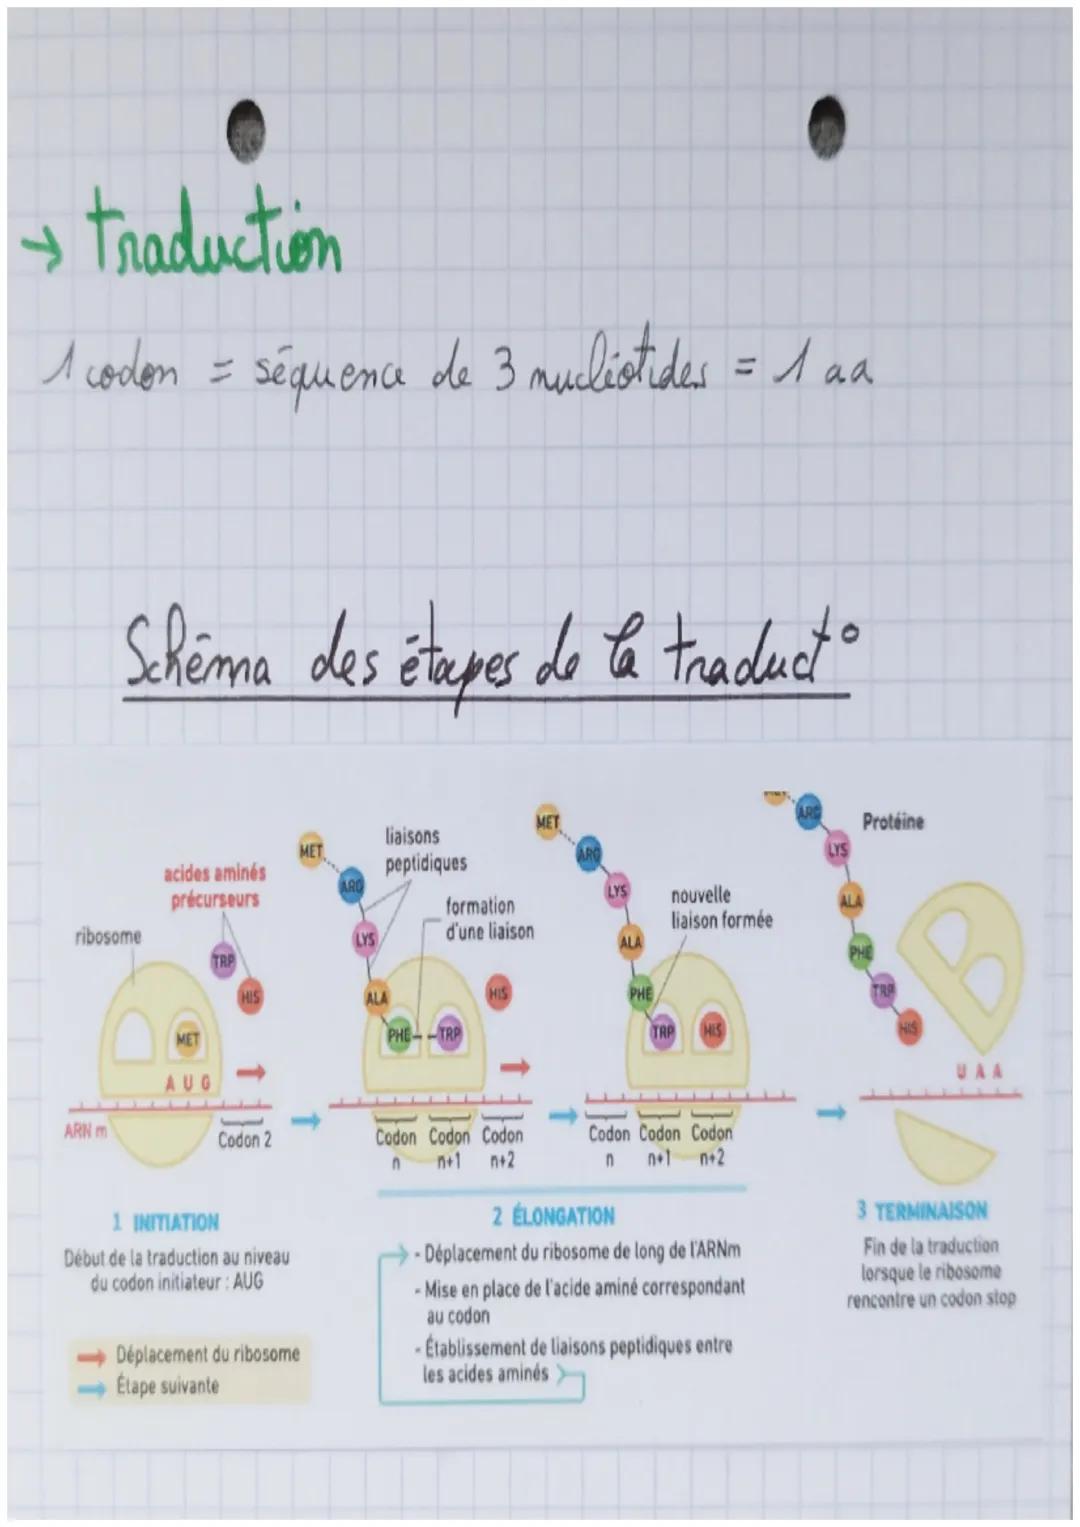 → traduction
1 codon = séquence de 3 nucléotides = 1 aa
Schéma des étapes de la traduct°
MET
ARG
LYS
ALA
PHE
TRP
liaisons
peptidiques
formation
d'une liaison
HIS
acides aminés
précurseurs
ribosome
TRP
HIS
MET
A U G
ARN m
Codon 2
Codon Codon Codon
n n+1 n+2
MET
ARG
LYS
ALA
PHE
TRP
HIS
nouvelle
liaison formée
Codon Codon Codon
n n+1 n+2
ARG
LYS
ALA
PHE
TRP
HIS
Protéine
U A A
1 INITIATION
Début de la traduction au niveau
du codon initiateur : AUG
→ Déplacement du ribosome
→ Étape suivante
2 ÉLONGATION
- Déplacement du ribosome de long de l'ARNm
- Mise en place de l'acide aminé correspondant
au codon
- Établissement de liaisons peptidiques entre
les acides aminés
3 TERMINAISON
Fin de la traduction
lorsque le ribosome
rencontre un codon stop